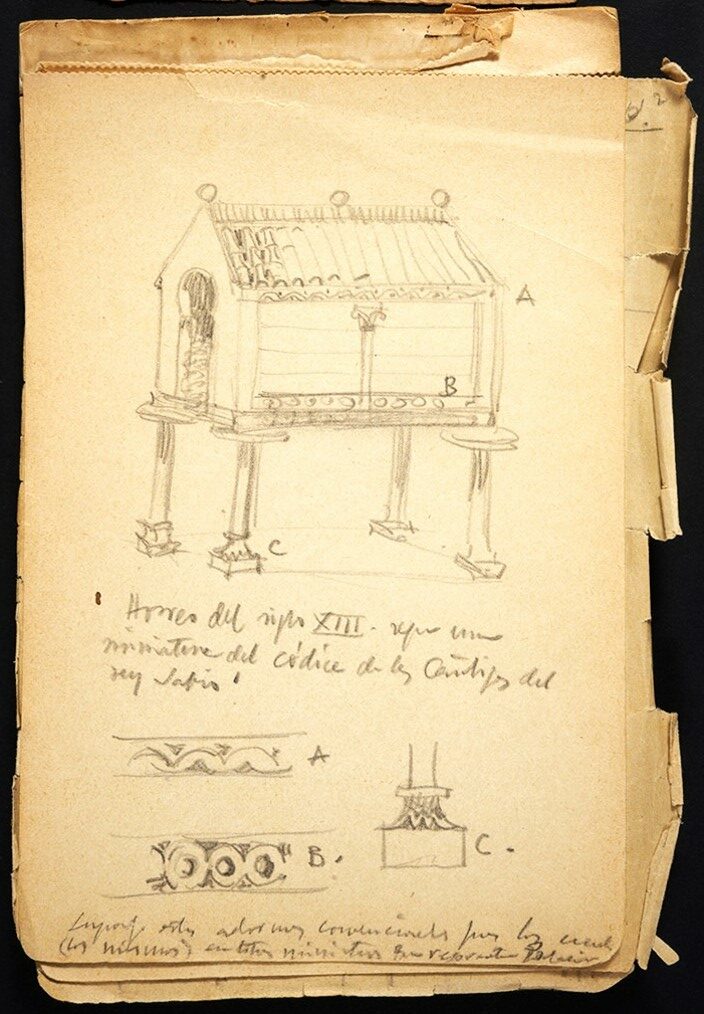 A
B
C
Horreo del siglo XIII. segun una
miniatura del códice de las Cántigas del
rey Sabio
A
B.
C.
estos adornos convencionales pues los
(los mismos) en otras miniaturas que representan Palacios